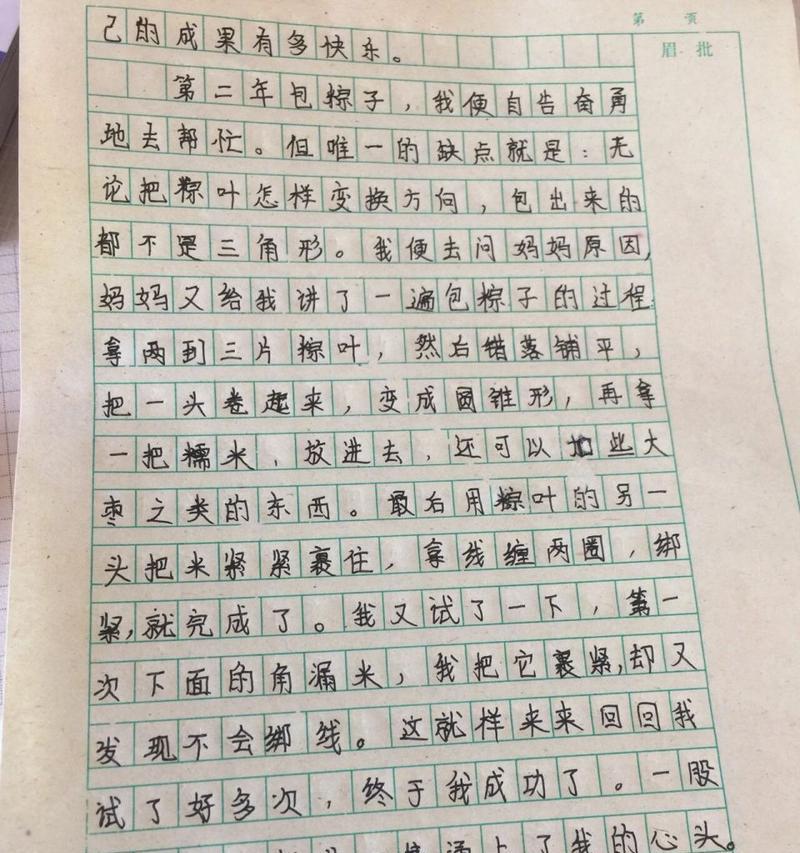 第 页
眉批
己的成果有多快乐。
第二年包粽子，我便自告奋勇
地去帮忙。但唯一的缺点就是：无
论把粽叶怎样变换方向，包出来的
都不是三角形。我便去问妈妈原因，
妈妈又给我讲了一遍包粽子的过程：
拿两到三片粽叶，然后错落铺平，
把一头卷起来，变成圆锥形，再拿
一把糯米，放进去，还可以加些大
枣之类的东西。最后用粽叶的另一
头把米紧紧裹住，拿线缠两圈，绑
紧，就完成了。我又试了一下，第一
次下面的角漏米，我把它裹紧，却又
发现不会绑线。这就样来来回回我
试了好多次，终于我成功了。一股
上了我的心头。